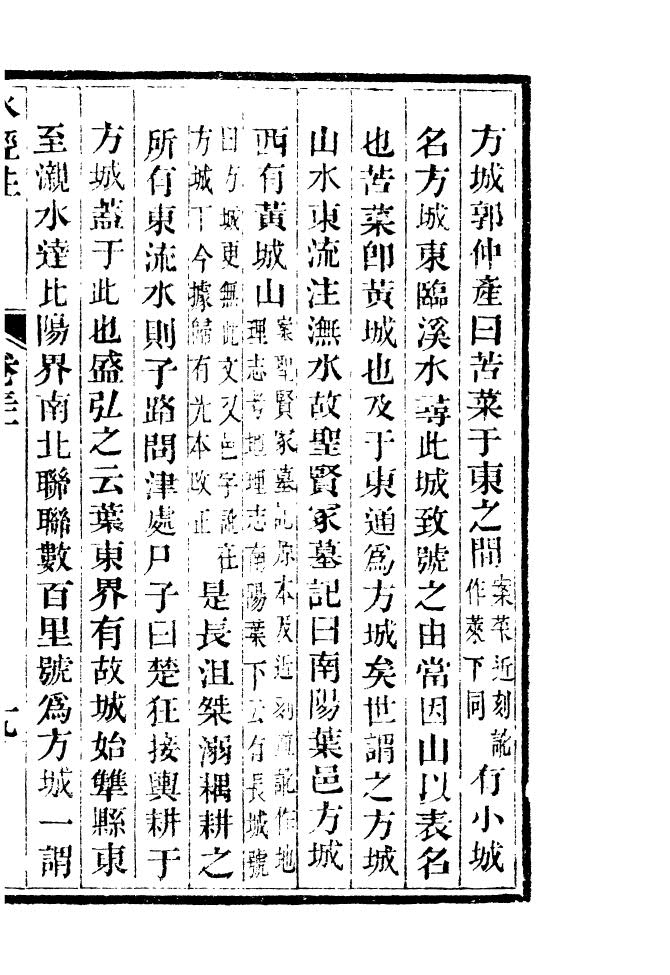 方城郭仲產曰苦菜于東之間案菜近刻訛作萊下同有小城
名方城東臨溪水尋此城致號之由當因山以表名
也苦菜卽黃城也及于東通爲方城矣世謂之方城
山水東流注潕水故聖賢冢墓記曰南陽葉邑方城
西有黃城山案聖賢冢墓記原本及近刻竝訛作地理志考地理志南陽葉下云有長城號
曰方城更無此文又邑字訛在方城下今據歸有光本改正是長沮桀溺耦耕之
所有東流水則子路問津處尸子曰楚狂接輿耕于
方城蓋于此也盛弘之云葉東界有故城始犨縣東
至瀙水達比陽界南北聯聯數百里號爲方城一謂
水經注 卷三十一 九